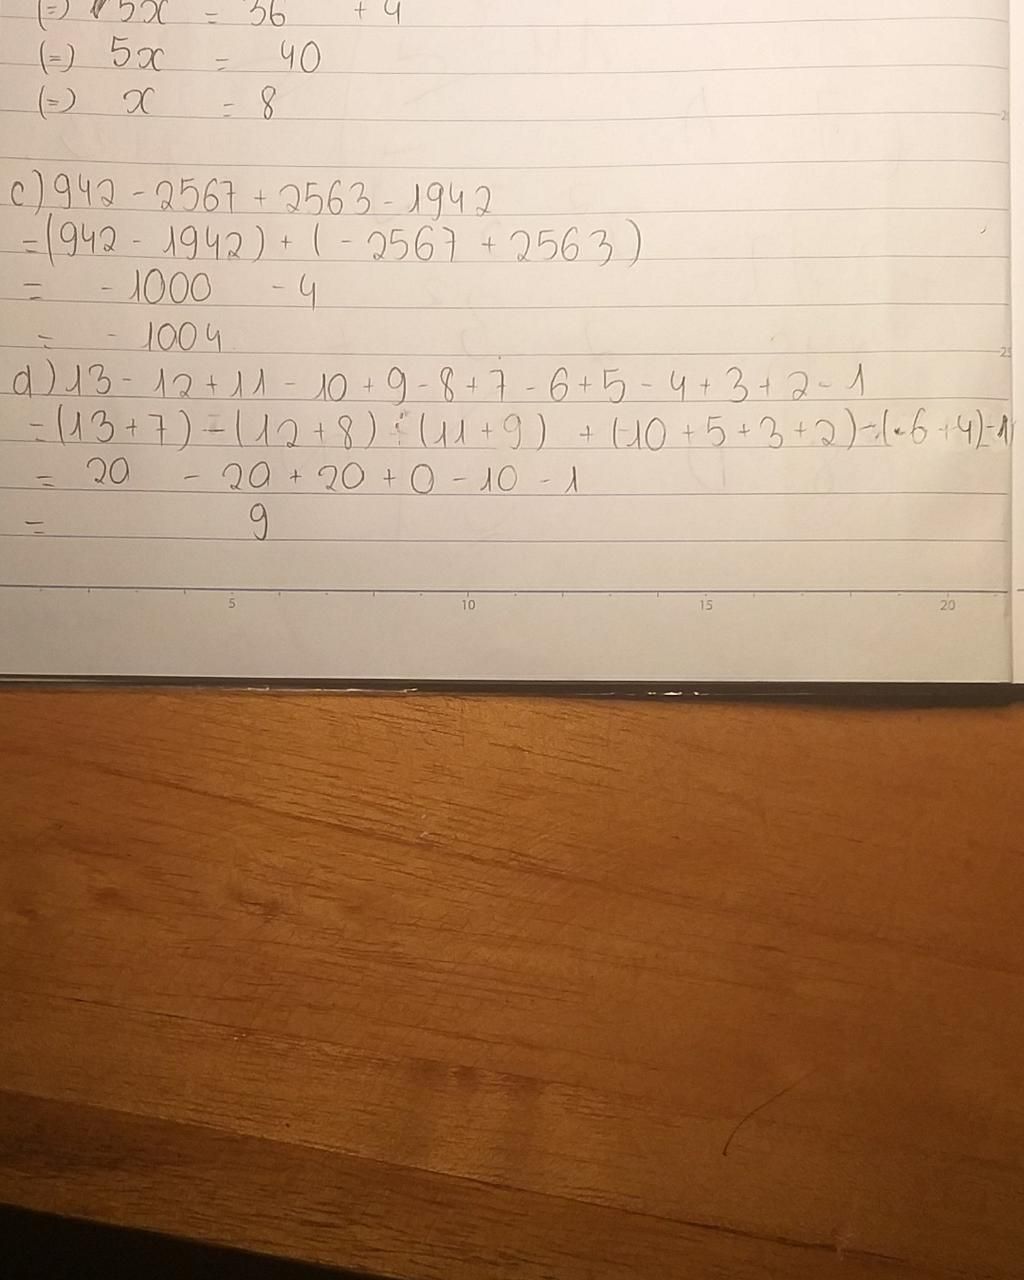 (=) 5x = 36 + 4
(=) 5x = 40
(=) x = 8
c) 942 - 2567 + 2563 - 1942
= (942 - 1942) + ( - 2567 + 2563 )
= - 1000 - 4
= - 1004
d) 13 - 12 + 11 - 10 + 9 - 8 + 7 - 6 + 5 - 4 + 3 + 2 - 1
= (13 + 7) - (12 + 8) + (11 + 9) + (-10 + 5 + 3 + 2) - (6 + 4) - 1
= 20 - 20 + 20 + 0 - 10 - 1
= 9
5 10 15 20